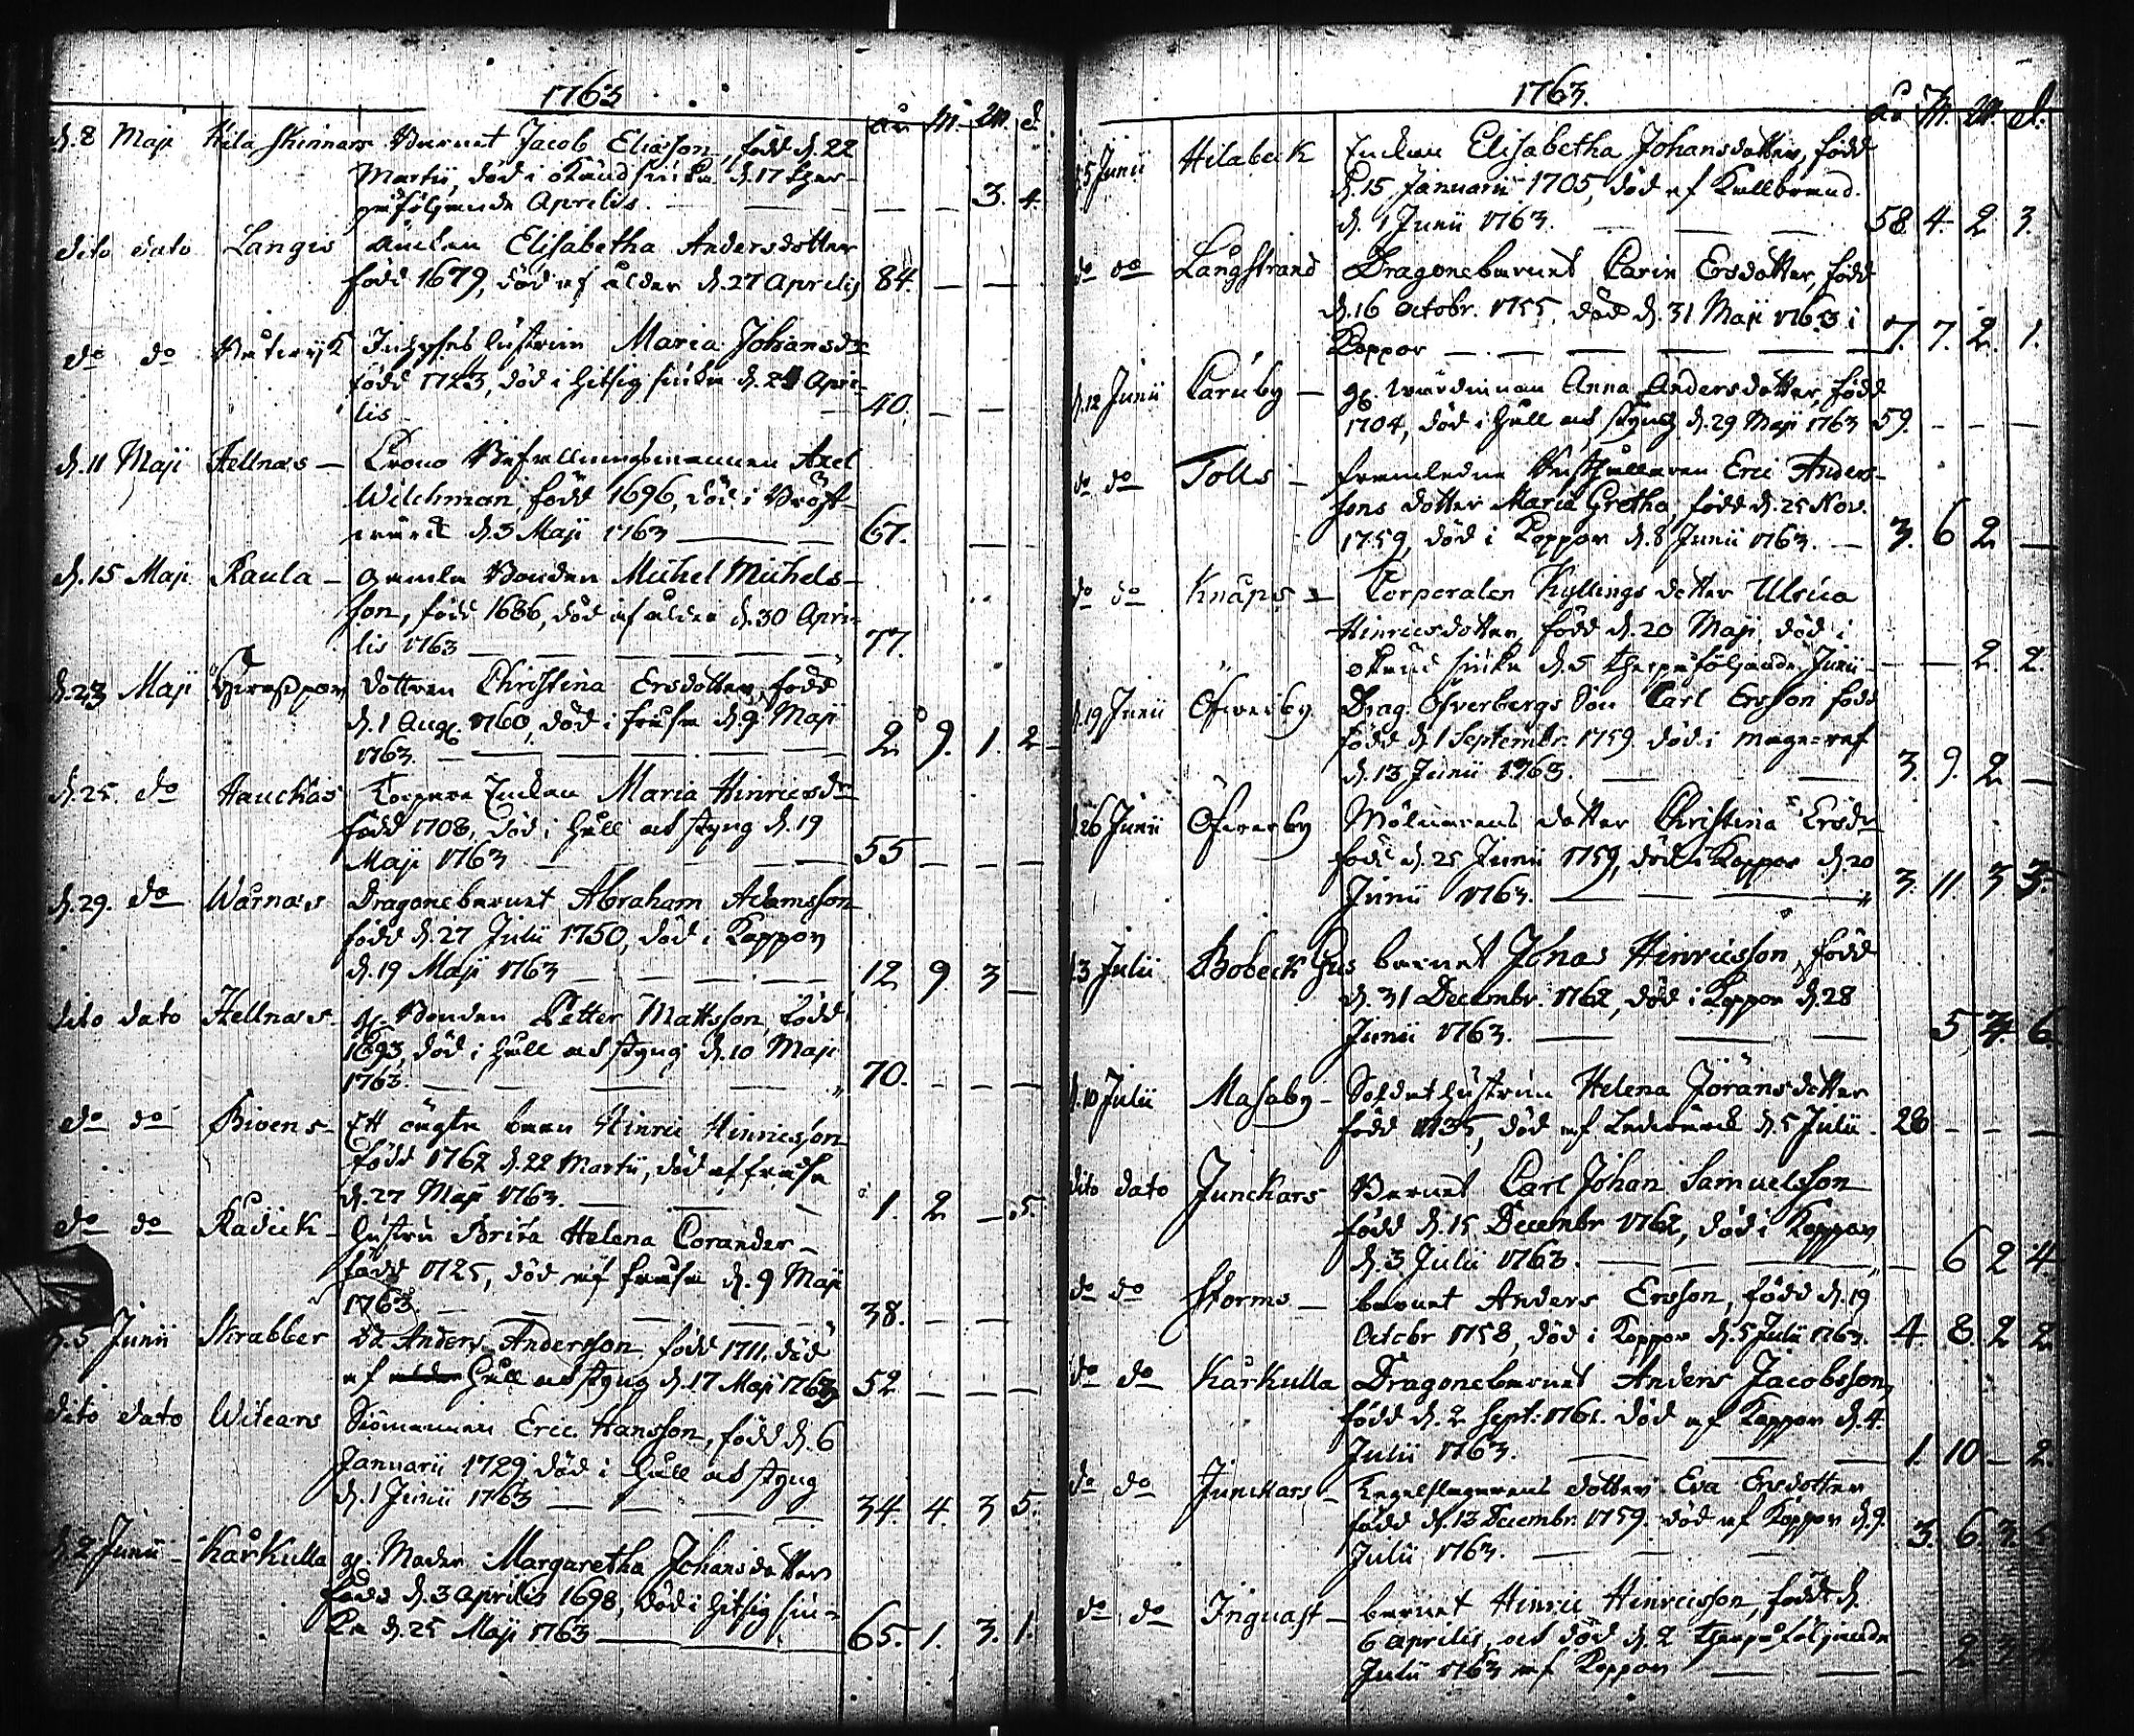 1763
åu M. W. d.
d. 8 Maji Hila Skinnars Barnet Jacob Eliasson, född d. 22
Martii, död i okänd siuka d. 17 ther-
påföljande Aprilis. — — — 3. 4.
dito dato Langis Änckan Elisabetha Andersdotter
född 1679, död af ålder d. 27 Aprilis 84. — —
do do Inhyses hustrun Maria Johansdr
född 1723, död i hitsig siuka d. 24 Apri-
lis — 40. — —
d. 11 Maji Hellnäs — Crono Befallningsmannen Axel
Wilchman, född 1696, död i Bröst-
wärck d. 3 Maji 1763 — 67. — —
d. 15 Maji Raula — gamla Bonden Michel Michels-
son, född 1686, död af ålder d. 30 Apri-
lis 1763 — 77.
d. 23 Maji dottren Christina Ersdotter, född
d. 1 Aug. 1760, död i frusen d. 9 Maji
1763. — 2. 9. 1. 2
d. 25. do Hauckas Torpare Enckan Maria Hinricsdr
född 1708, död i håll och styng d. 19
Maji 1763 — 55 — — —
d. 29. do Wårnäs Dragonebarnet Abraham Adamsson
född d. 27 Julii 1750, död i Koppor
d. 19 Maji 1763 — 12 9 3 —
dito dato Hellnäs. gl. Bonden Petter Mattsson, född
1693, död i håll och styng d. 10 Maji
1763. — 70. — — —
do do Bivens — Ett ächta barn Hinric Hinricsson
född 1762 d. 22 Martii, död af frusen
d. 27 Maji 1763. — 1. 2 — 5.
do do Rådick — hustru Brita Helena Corander —
född 1725, död af frusen d. 9 Maji
1763. — 38. — —
d. 5 Junii Skrabber Anders Andersson född 1711. död
af håll och styng d. 17 Maji 1763 52 — — —
dito dato Witcars Siömannen Eric Hansson, född d. 6
Januarii 1729, död i håll och styng
d. 1 Junii 1763 — 34. 4. 3 5.
d. 2 Junii — Kårkulla gl. Moder Margaretha Johansdotter
född d. 3 Aprilis 1698, död i hitsig siu-
ka d. 25 Maji 1763 — 65. 1. 3. 1.
1763.
åu M. W. d.
5 Junii Hilabäck Enckan Elisabetha Johansdotter, född
d. 15 Januarii 1705, död af Kallbrand
d. 1 Junii 1763. — 58 4. 2 3.
do do Långstrand Dragonebarnet Carin Ersdotter, född
d. 16 Octobr. 1755, död d. 31 Maji 1763 i
Koppor — 7. 7. 2. 1.
d. 12 Junii Paruby — gl. Anna Andersdotter, född
1704, död i håll och styng d. 29 Maji 1763 59. — — —
do do Tolls — framledne Eric Anders-
sons dotter Maria Gretha, född d. 25 Nov.
1759, död i Koppor d. 8 Junii 1763. — 3. 6 2 —
do do Knåps — Corporalen Kyllings dotter Ulrica
Hinricsdotter, född d. 20 Maji, död i
okänd siuka d. 5 therpåföljande Junii — — 2. 2.
d. 19 Junii Öfwerby Drag. Öfverbergs Son Carl Ersson född
född d. 1 Septembr. 1759 död i magref
d. 13 Junii 1763. — 3. 9. 2 —
d. 26 Junii Öfwerby Mölnarens dotter Christina Ersdr
född d. 25 Junii 1759, död i Koppor d. 20
Junii 1763. — 3. 11. 3 3.
d. 3 Julii Bobeck Gus barnet Jonas Hinricsson, född
d. 31 Decembr. 1762, död i Koppor d. 28
Junii 1763. — 5, 4. 6.
d. 10 Julii Masaby — Soldathustrun Helena Jöransdotter
född 1735, död af Ledwärck d. 5 Julii. 28 — — —
dito dato Junckars Barnet Carl Johan Samuelsson
född d. 15 Decembr 1762, död i Koppor
d. 3 Julii 1763. — 6 2 4.
do do Storms — barnet Anders Ersson, född d. 19
Octobr 1758, död i Koppor d. 5 Julii 1763. 4. 8. 2 2
do do Kårkulla Dragonebarnet Anders Jacobsson,
född d. 2 Sept: 1761. död af Koppor d. 4.
Julii 1763. — 1. 10 — 2.
do do Junckars — dotter Eva Ersdotter
född d. 13 Decembr 1759. död af Koppor d. 9.
Julii 1763. — 3. 6. 3.
do do Ingvast — barnet Hinric Hinricsson, född d.
6 Aprilis, och död d. 2 therpåföljande
Julii 1763 af Koppor — 2